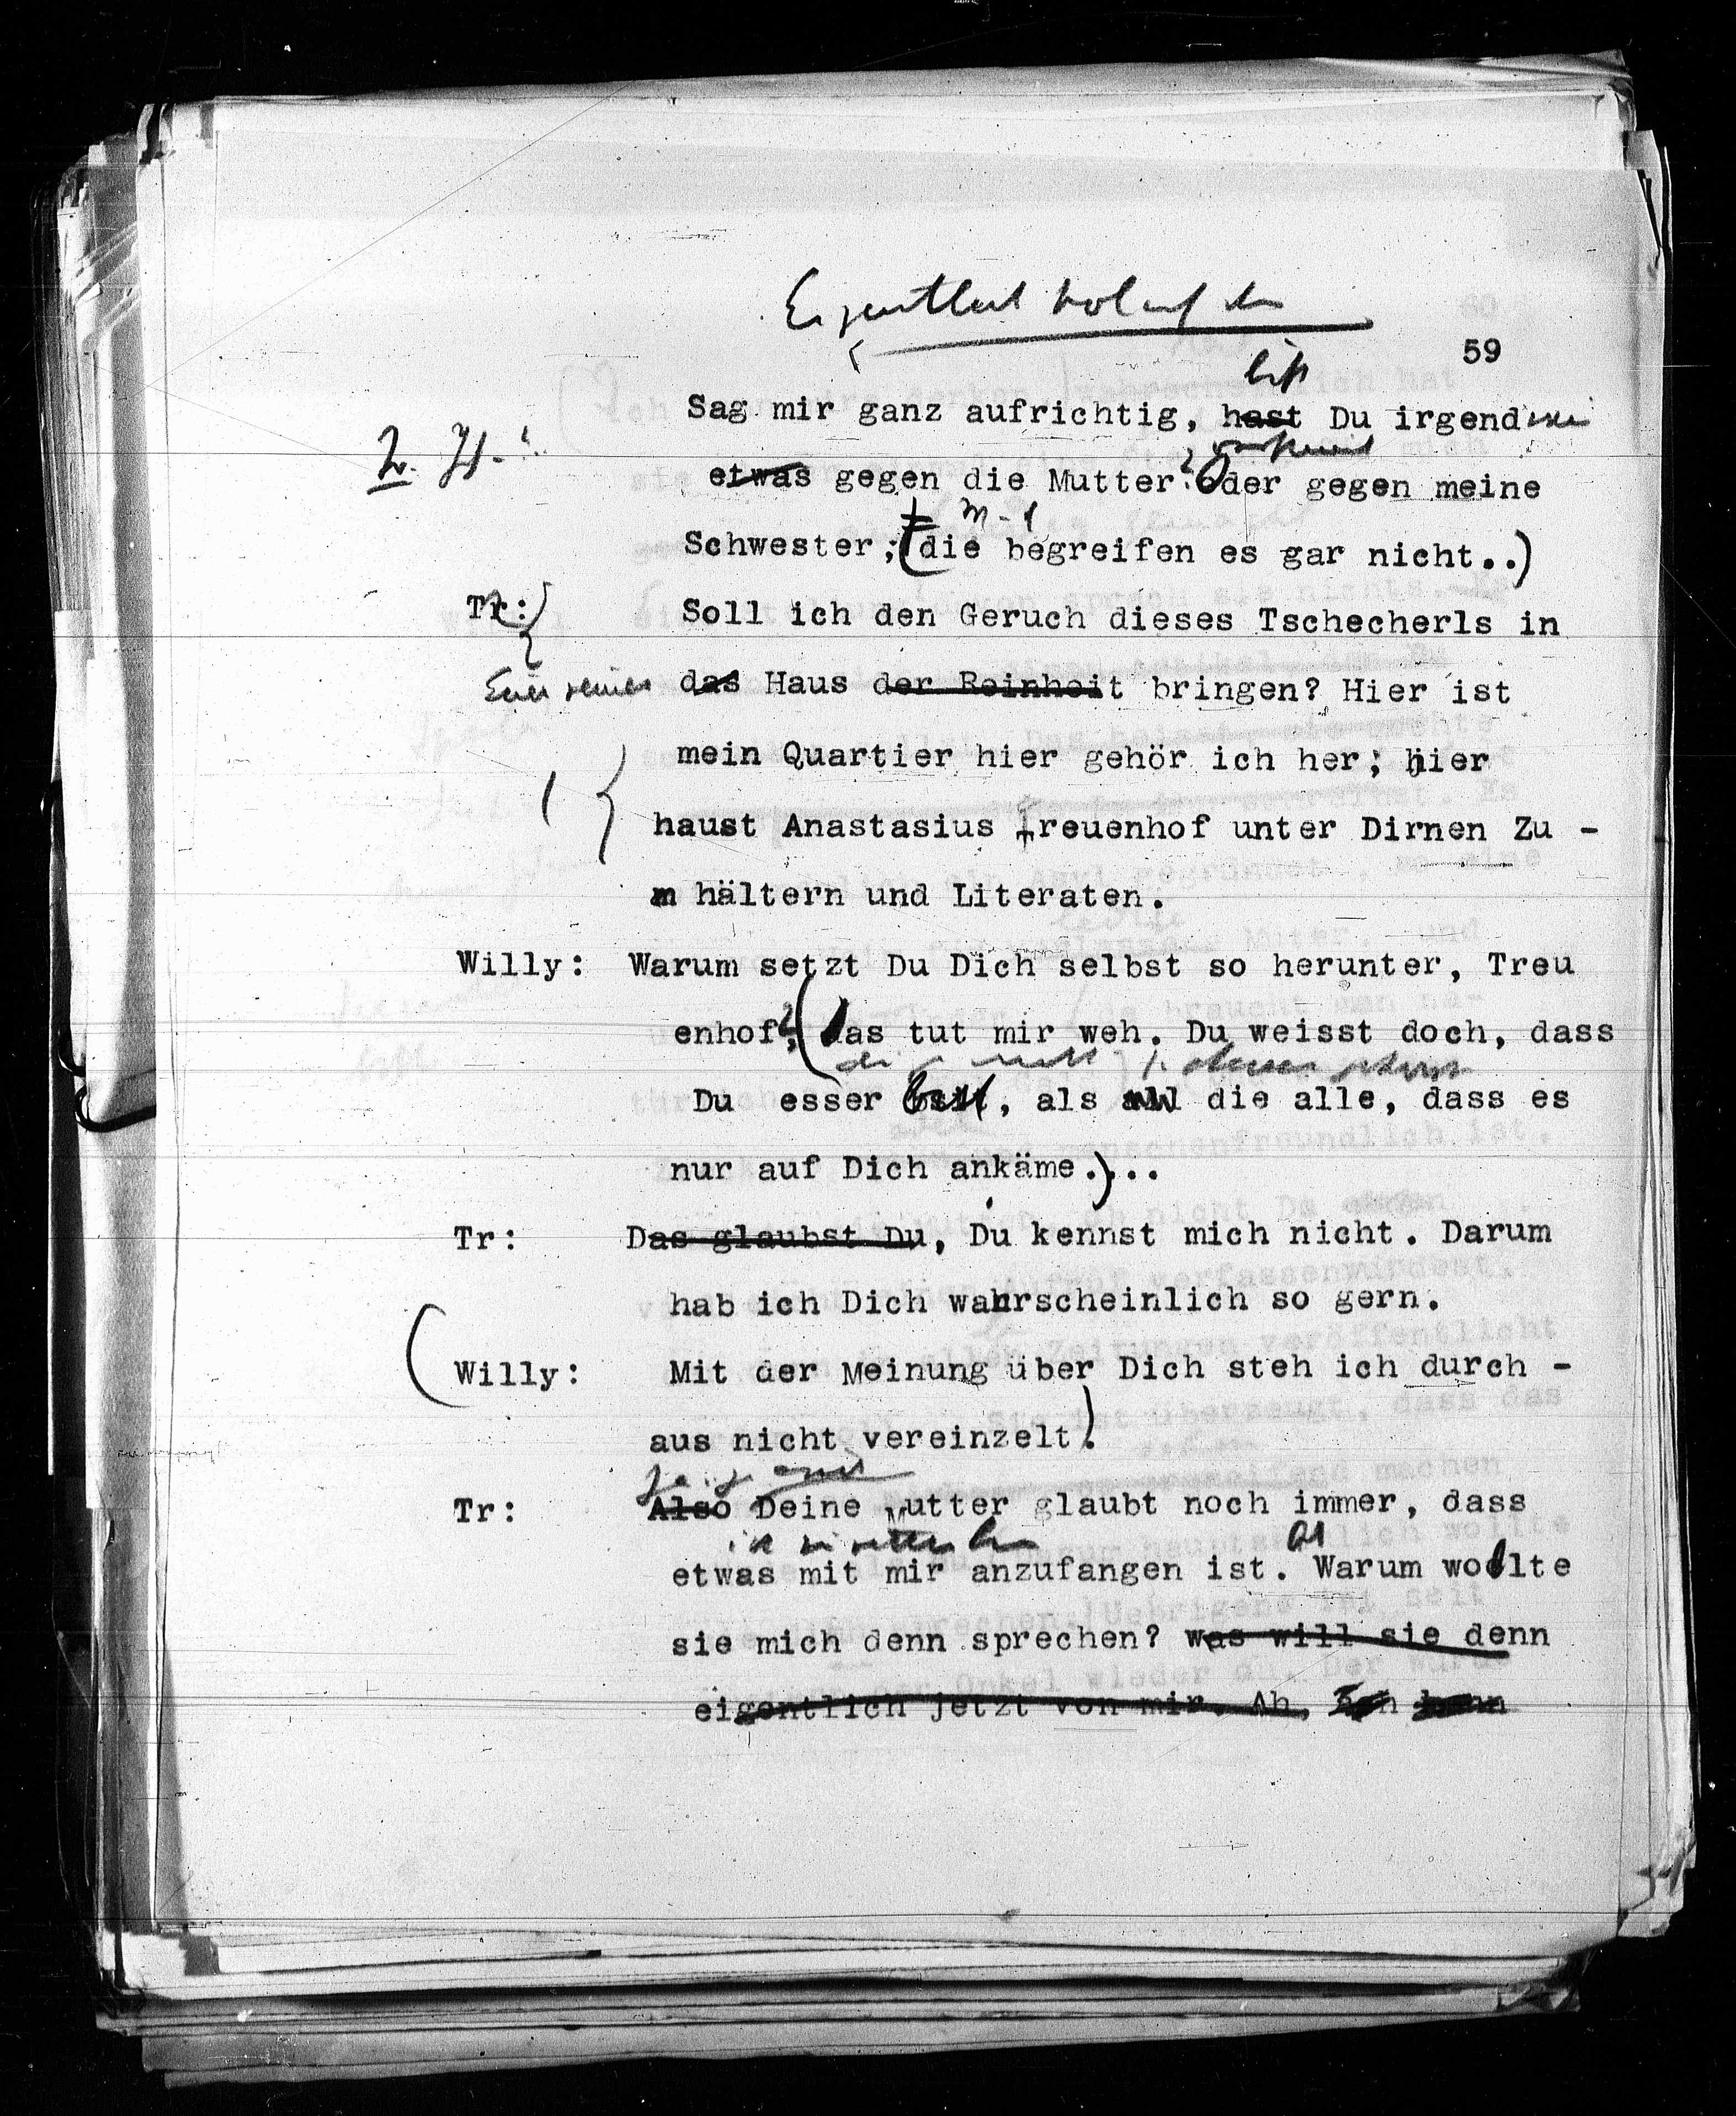 59
bist
Sag mir ganz aufrichtig, hast Du irgendwie
etwas gegen die Mutter? Oder gegen meine
Schwester; (die begreifen es gar nicht..)
Tr: Soll ich den Geruch dieses Tschecherls in
Euer reines das Haus der Reinheit bringen? Hier ist
mein Quartier hier gehör ich her; hier
haust Anastasius Treuenhof unter Dirnen Zu -
hältern und Literaten.
Willy: Warum setzt Du Dich selbst so herunter, Treu
enhof? (das tut mir weh. Du weisst doch, dass
Du esser bist, als all die alle, dass es
nur auf Dich ankäme.)...
Tr: Das glaubst Du, Du kennst mich nicht. Darum
hab ich Dich wahrscheinlich so gern.
(Willy: Mit der Meinung über Dich steh ich durch -
aus nicht vereinzelt).
Tr: Also Deine Mutter glaubt noch immer, dass
etwas mit mir anzufangen ist. Warum wollte
sie mich denn sprechen? was will sie denn
eigentlich jetzt von mir. Ah,